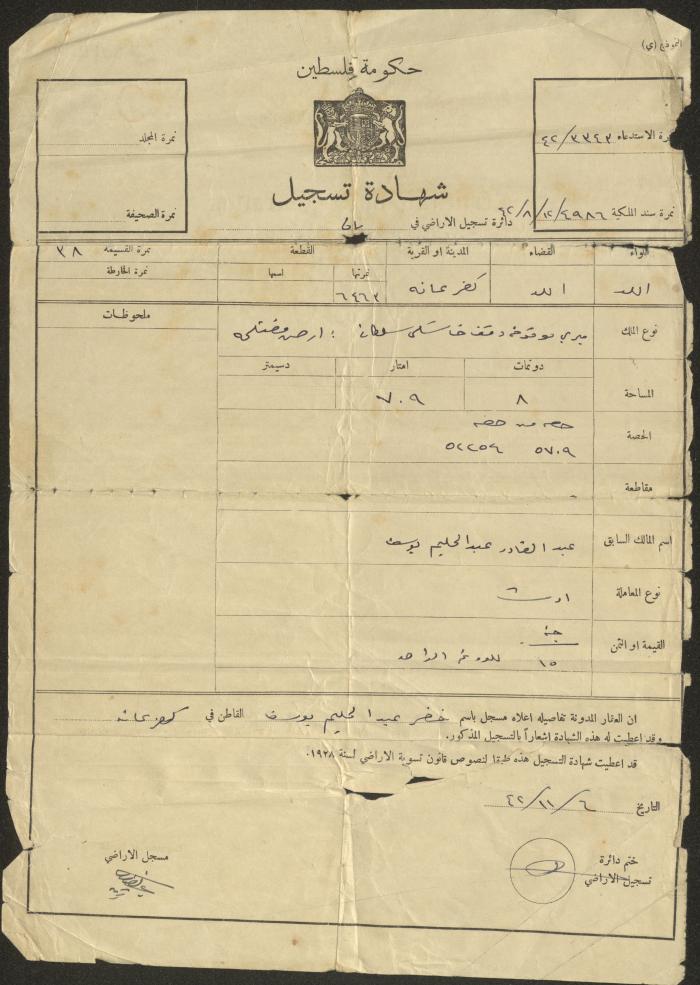 النموذج (ي)
حكومة فلسطين
نمرة الاستدعاء ٤٢/٣٣٤٣
نمرة المجلد
شهادة تسجيل
نمرة سند الملكية
نمرة الصحيفة
دائرة تسجيل الاراضي في يافا
اللواء القضاء المدينة او القرية القطعة نمرة القسيمة ٣٨
نمرتها اسمها نمرة الخارطة
اللد اللد كفر عانه ٦٤٦٣
نوع الملك ميري موقوفة وقف خاسكي سلطان ملحوظات
دونمات امتار دسيمتر
المساحة ٨ ٧٠٩
الحصة حصه من حصه
٥٧٠٩ ٥٢٢٥٤
مقاطعة
اسم المالك السابق عبد القادر عبد الحليم يوسف
نوع المعاملة ارث
القيمة او الثمن جنيه
١٥ للدونم الواحد
ان العقار المدونة تفاصيله اعلاه مسجل باسم خضر عبد الحليم يوسف القاطن في كفر عانه
وقد اعطيت له هذه الشهادة اشعاراً بالتسجيل المذكور.
قد اعطيت شهادة التسجيل هذه طبقا لنصوص قانون تسوية الاراضي لسنة ١٩٢٨.
التاريخ ٦/١١/٤٢
ختم دائرة
تسجيل الاراضي
مسجل الاراضي